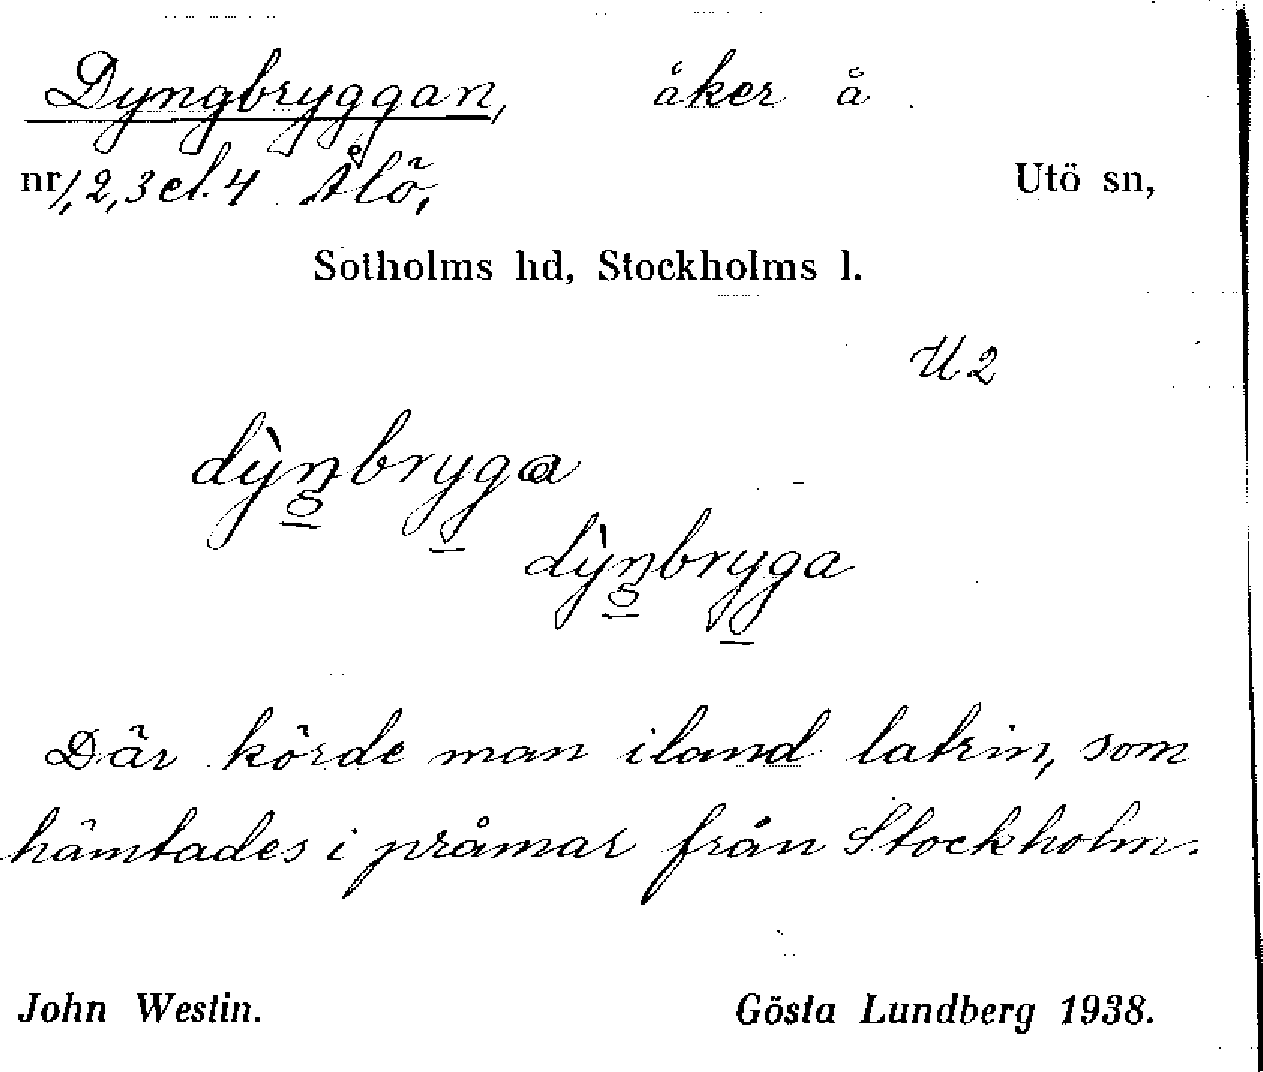 Dyngbryggan, åker å
nr 1, 2, 3 el. 4 Ålö, Utö sn,
Sotholms hd, Stockholms l.
U2
dỳnbryga
dỳnbryga
Där körde man iland latrin, som
hämtades i pråmar från Stockholm.
John Westin. Gösta Lundberg 1938.